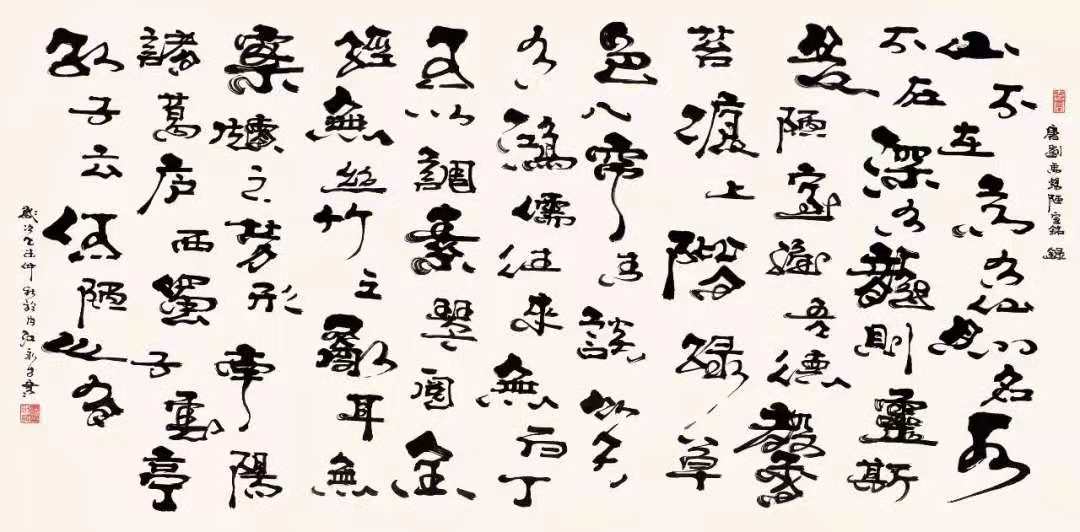 唐劉禹錫陋室銘 錄
山不在高有仙則名水
不在深有龍則靈斯
是陋室惟吾德馨
苔痕上階綠草
色入帘青談笑
有鴻儒往來無白丁
可以調素琴閱金
經無絲竹之亂耳無
案牘之勞形南陽
諸葛庐西蜀子雲亭
孔子云何陋之有
歲次乙未仲秋於內江